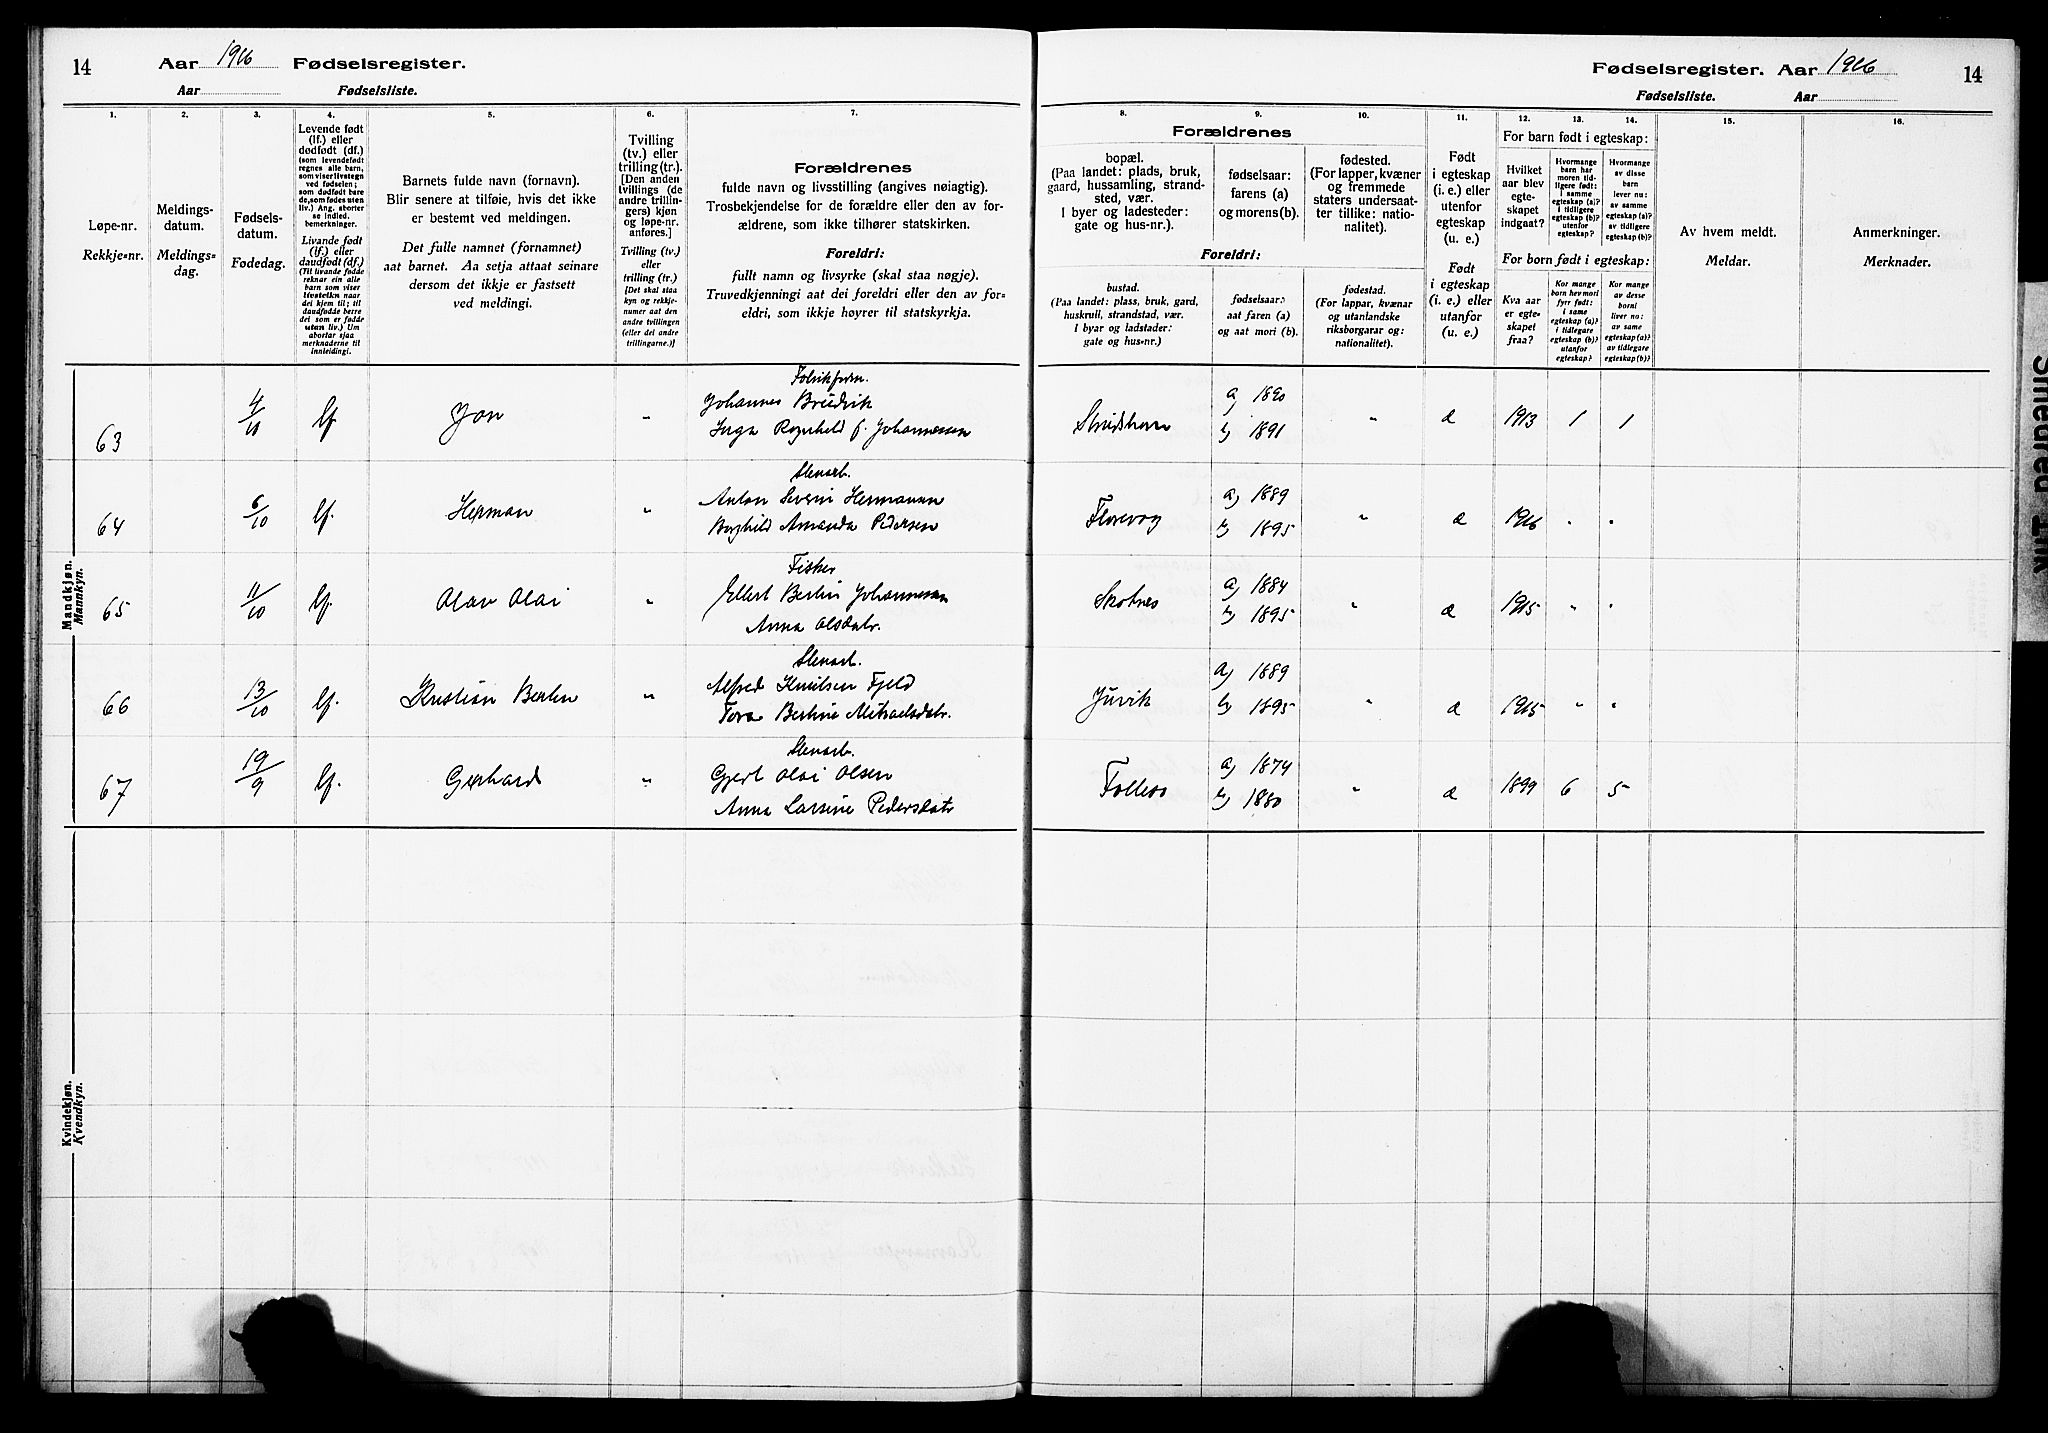 14
Aar 1916 Fødselsregister.
Aar Fødselsliste.
Fødselsregister. Aar 1916
14
Fødselsliste. Aar
1. 2. 3. 4. 5. 6. 7.
Løpe-nr.
Rekkje-nr.
Meldings-
datum.
Meldings-
dag.
Fødsels-
datum.
Fødedag.
Levende født
(lf.) eller
dødfødt (df.)
(som levendefødt
regnes alle barn,
som viser livstegn
ved fødselen;
som dødfødt bare
de, som fødes uten
liv.) Ang. aborter
se indled.
bemerkninger.
Livande født
(lf.) eller
daudfødt (df.)
(Til livande fødde
reknar ein alle
barn som viser
livsteikn naar
dei kjem til; til
daudfødde berre
dei som er fødde
utan liv.) Um
abortar sjaa
merknaderne til
innleidingi.
Barnets fulde navn (fornavn).
Blir senere at tilføie, hvis det ikke
er bestemt ved meldingen.
Det fulle namnet (fornamnet)
aat barnet. Aa setja attaat seinare
dersom det ikkje er fastsett
ved meldingi.
Tvilling
(tv.) eller
trilling (tr.).
[Den anden
tvillings (de
andre trillin-
gers) kjøn
og løpe-nr.
anføres.]
Tvilling (tv.)
eller
trilling (tr.)
[Det skal staa
kyn og rekkje-
numer aat den
andre tvillingen
(eller dei andre
trillingarne.)]
Forældrenes
fulde navn og livsstilling (angives nøiagtig).
Trosbekjendelse for de forældre eller den av for-
ældrene, som ikke tilhører statskirken.
Foreldri:
fullt namn og livsyrke (skal staa nøgje).
Truvedkjenningi aat dei foreldri eller den av for-
eldri, som ikkje høyrer til statskyrkja.
8. 9. 10. 11. 12. 13. 14. 15. 16.
Forældrenes
bopæl.
(Paa landet: plads, bruk,
gaard, hussamling, strand-
sted, vær.
I byer og ladesteder:
gate og hus-nr.).
fødselsaar:
farens (a)
og morens (b).
fødested.
(For lapper, kvæner
og fremmede
staters undersaat-
ter tillike: natio-
nalitet).
Foreldri:
bustad.
(Paa landet: plass, bruk, gard,
huskrull, strandstad, vær.
I byar og ladstader:
gate og hus-nr.)
fødselsaar:
aat faren (a)
og aat mori (b).
fødestad.
(For lappar, kvænar
og utanlandske
riksborgarar og:
nationalitet).
Født
i egteskap
(i. e.) eller
utenfor
egteskap
(u. e.)
Født
i egteskap
(i. e.) eller
utanfor
(u. e.)
For barn født i egteskap:
Hvilket
aar blev
egte-
skapet
indgaat?
Hvormange
barn har
moren tid-
ligere født:
i samme
egteskap (a)?
i tidligere
egteskap (b)?
utenfor
egteskap?
Hvormange
av disse
barn
lever nu:
av samme
egteskap (a)?
av tidligere
egteskap (b)?
For born født i egteskap:
Kva aar
er egte-
skapet
fraa?
Kor mange
born hev mori
fyrr født:
i same
egteskap (a)?
i tidlegare
egteskap (b)?
utanfor
egteskap?
Kor mange
av desse
borni
liver no:
av same
egteskap (a)?
av tidlegare
egteskap (b)?
Av hvem meldt.
Meldar.
Anmerkninger.
Merknader.
Mandkjøn.
Mannkyn.
63 4/10 lf. Jon "
Johannes Brudvik
Inga Ragnhild f. Johannessen
a) 1890
b) 1891
" æ 1913 1 1
64 6/10 lf. Herman "
Stenarb.
Anton Severin Hermansen
Borghild Amanda Pedersen
Florevag
a) 1889
b) 1895
" æ 1916 " "
65 11/10 lf. Olav Olai "
Fisker
Ellert Bertin Johannessen
Anna Olsdatr.
Skotnes
a) 1884
b) 1895
" æ 1915 " "
66 13/10 lf. Kristian Bertin "
Stenarb.
Alfred Knutsen Fjeld
Tora Bertine Mikaelsdatr.
Juvik
a) 1889
b) 1895
" æ 1915 " "
67 19/9 lf. Gerhard "
Stenarb.
Gjert Olai Olsen
Anna Larsine Pedersdatr
Follesø
a) 1874
b) 1880
" æ 1899 6 5
Kvindekjøn.
Kvendkyn.